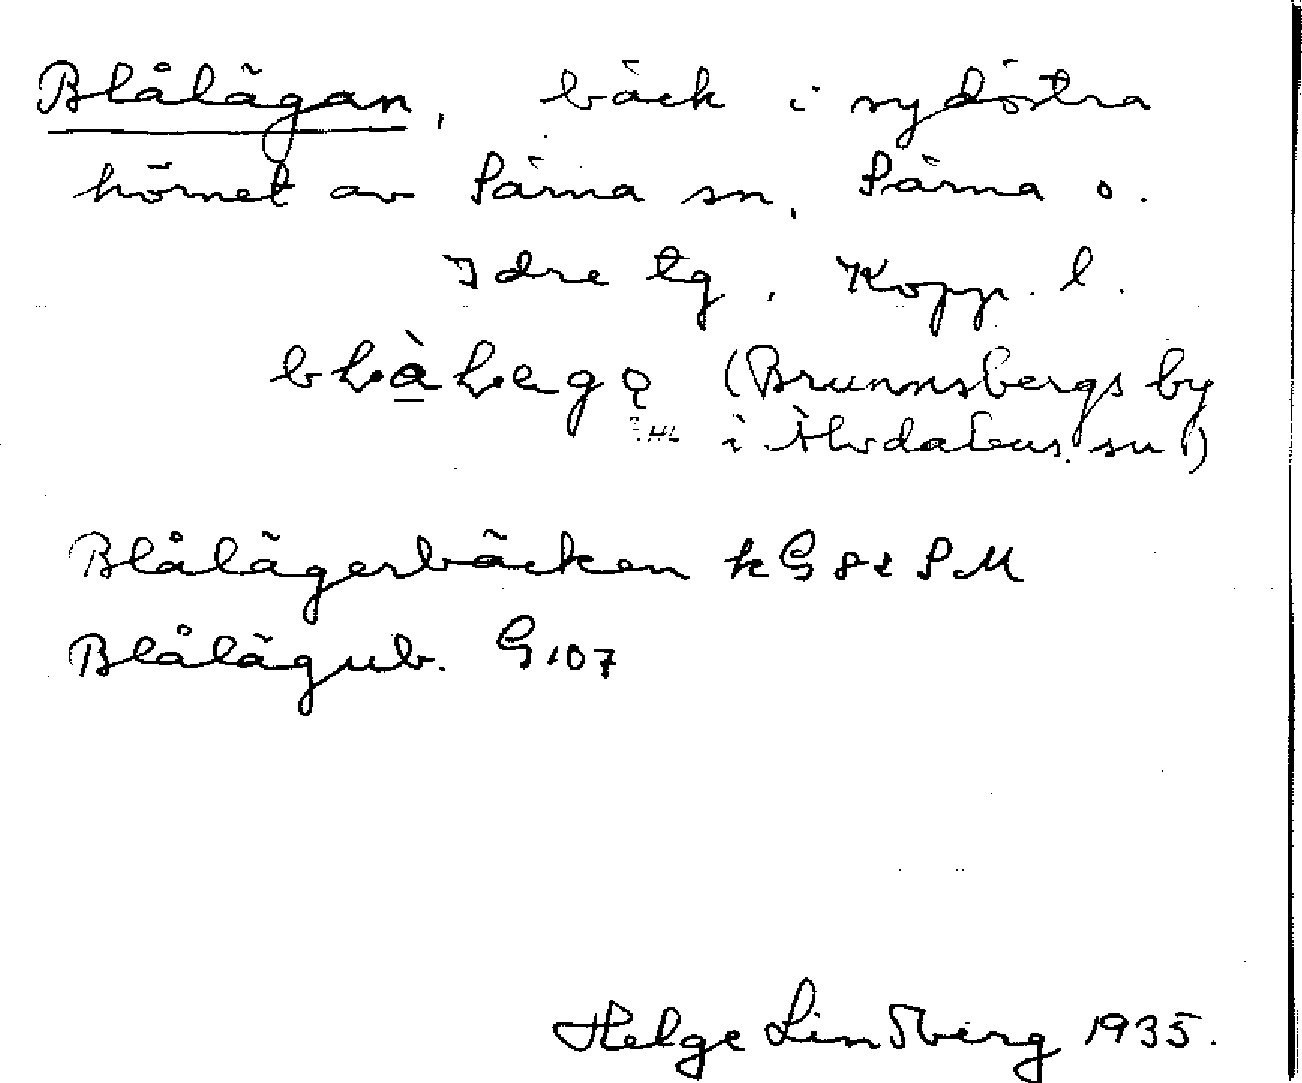 Blålägan, bäck i sydöstra
hörnet av Särna sn, Särna o.
Idre tg, Kopp. l.
(Brunnsbergs by
i Älvdalens sn)
Blålägerbäcken kG 82 SM
Blålägub. G 107
Helge Lindberg 1935.